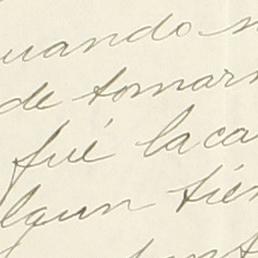 uando
de tomar
fué la ca
algun tie